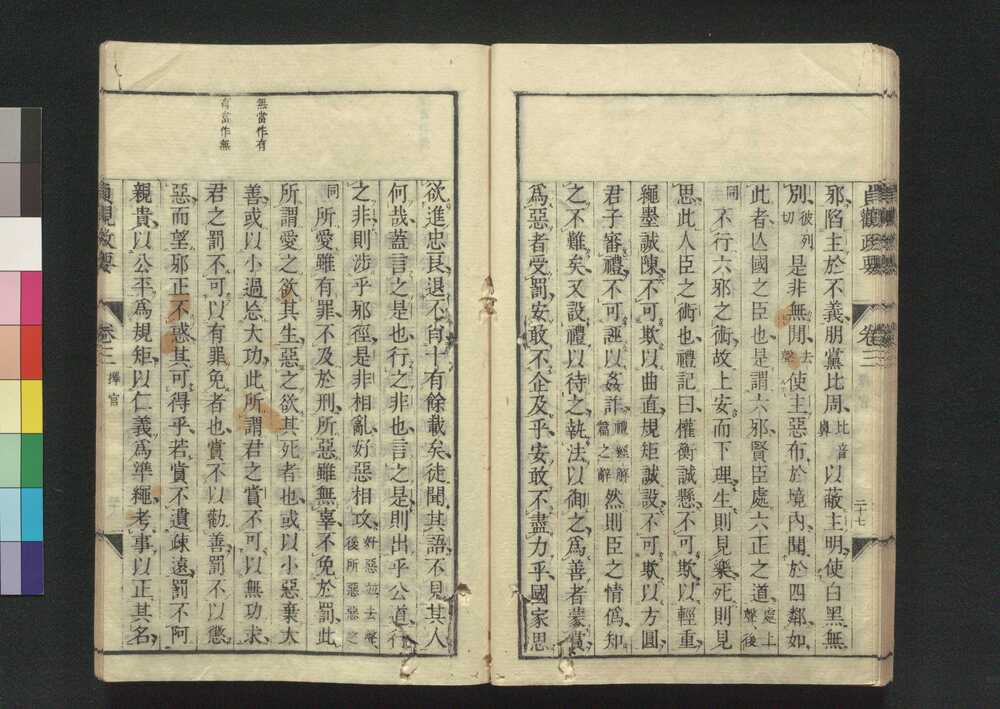 貞觀政要
卷三
二十七
邪陷主於不義朋黨比周比音鼻以蔽主明使白黑無
別彼列切是非無聞去聲使主惡布於境內聞於四鄰如
此者亾國之臣也是謂六邪賢臣處六正之道處上聲後
同不行六邪之術故上安而下理生則見樂死則見
思此人臣之術也禮記曰權衡誠懸不可欺以輕重
繩墨誠陳不可欺以曲直規矩誠設不可欺以方圓
君子審禮不可誣以姦詐禮經解篇之辭然則臣之情僞知
之不難矣又設禮以待之執法以御之爲善者蒙賞
爲惡者受罰安敢不企及乎安敢不盡力乎國家思
欲進忠良退不肖十有餘載矣徒聞其語不見其人
何哉蓋言之是也行之非也言之是則出乎公道行
之非則涉乎邪徑是非相亂好惡相攻好惡並去聲後所惡惡之
同所愛雖有罪不及於刑所惡雖無辜不免於罰此
所謂愛之欲其生惡之欲其死者也或以小惡棄大
善或以小過忘大功此所謂君之賞不可以無功求
君之罰不可以有罪免者也賞不以勸善罰不以懲
惡而望邪正不惑其可得乎若賞不遺疎遠罰不阿
親貴以公平爲規矩以仁義爲準繩考事以正其名
無當作有
有當作無
貞觀政要
卷三
擇官